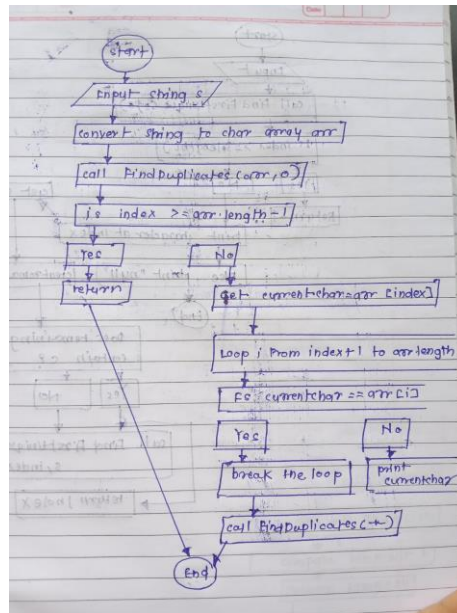 Date
start
Input string s
convert string to char array arr
call FindDuplicates(arr,0)
is index >= arr.length-1
Yes No
return
Get currentchar=arr[index]
Loop i from index+1 to arr.length
Is currentchar == arr[i]
Yes No
break the loop
print
currentchar
call FindDuplicates(
End